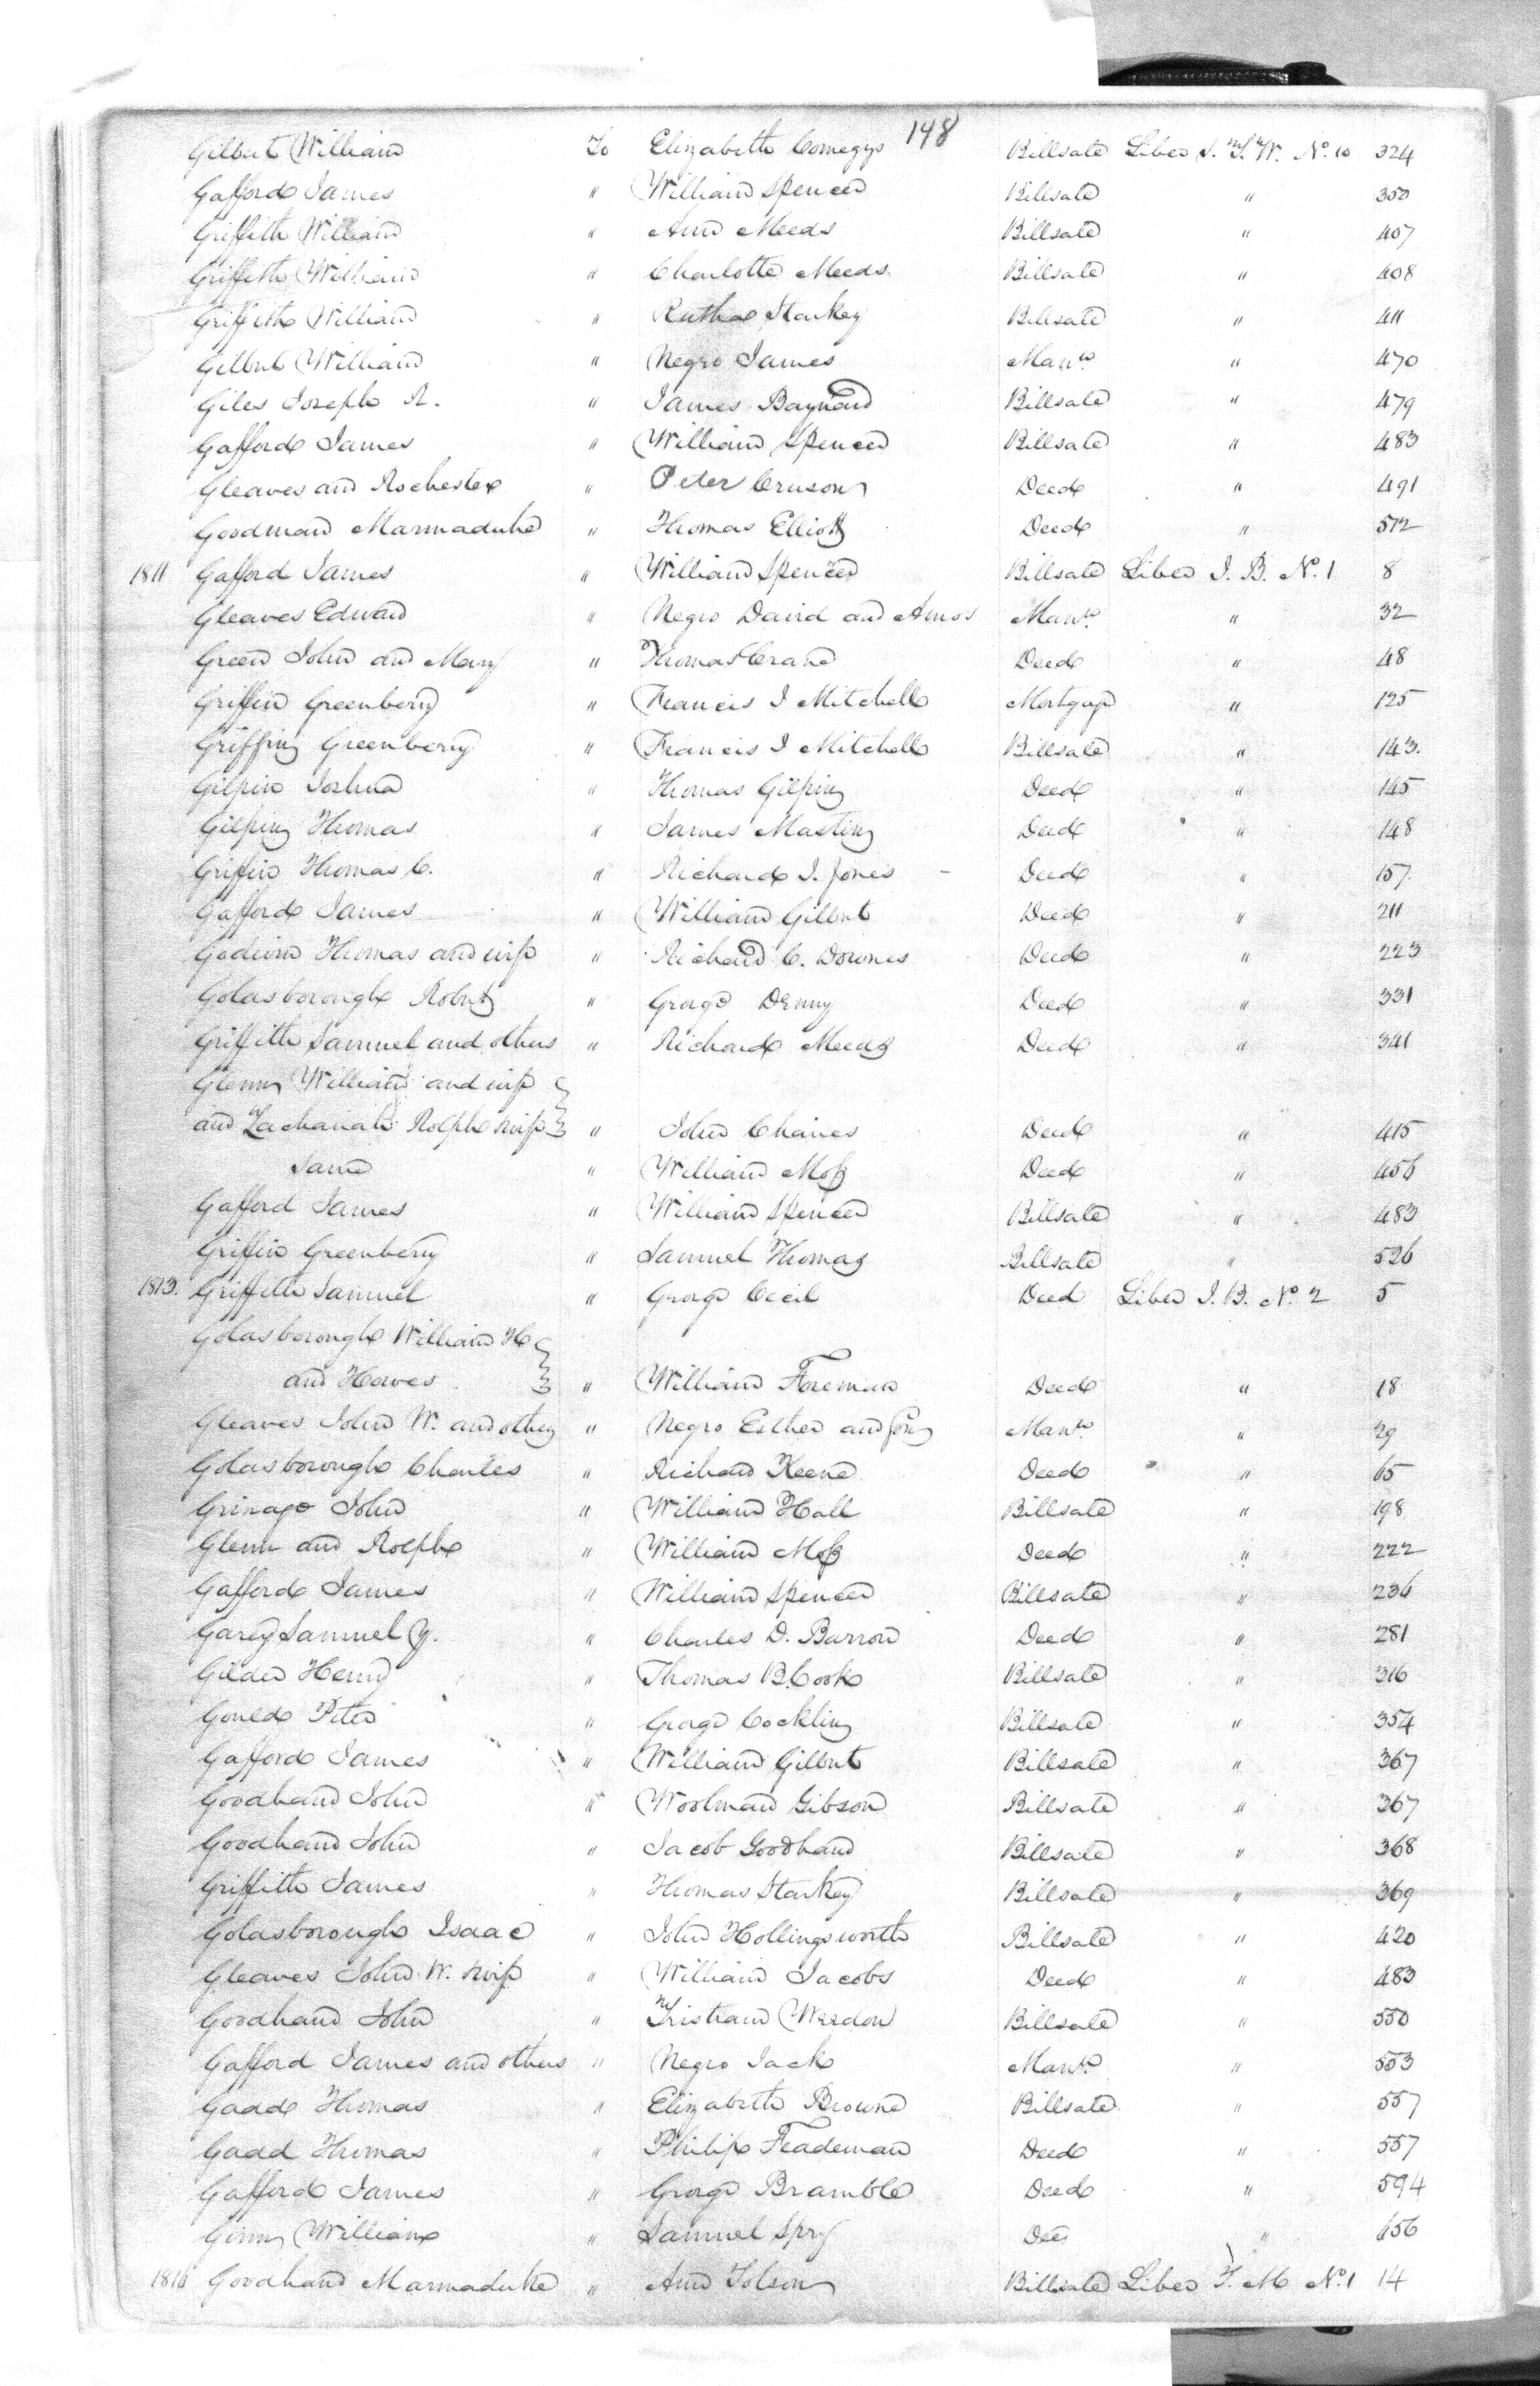 148
Gilbert William To Elizabeth Comegys Billsale Liber S.T.W. No. 10 324
Gafford James " William Spencer Billsale " 350
Griffith William " Ann Meeds Billsale " 407
Griffith William " Charlotte Meeds Billsale " 408
Griffith William " Ruth Starkey Billsale " 411
Gilbert William " Negro James Mann. " 470
Giles Joseph R. " James Baynard Billsale " 479
Gafford James " William Spencer Billsale " 483
Gleaves and Rochester " Peter Cruson Deed " 491
Goodman Marmaduke " Thomas Elliott Deed " 512
1811 Gafford James " William Spencer Billsale Liber I. B. No. 1 8
Gleaves Edward " Negro David and Amos Mann. " 32
Green John and Mary " Thomas Crane Deed " 48
Griffin Greenberry " Francis I Mitchell Mortgage " 125
Griffin Greenberry " Francis I Mitchell Billsale " 143.
Gilpin Joshua " Thomas Gilpin Deed " 145
Gilpin Thomas " James Mastin Deed " 148
Griffin Thomas C. " Richard I. Jones - Deed " 157.
Gafford James " William Gilbert Deed " 211
Godwin Thomas and wife " Richard C. Downes Deed " 223
Goldsborough Robert " George Denny Deed " 331
Griffith Samuel and others " Richard Meeds Deed " 341
Glenn William and wife
and Zachariah Rolph & wife " John Chaires Deed " 415
Same " William Moss Deed " 456
Gafford James " William Spencer Billsale " 483
Griffin Greenberry " Samuel Thomas Billsale " 526
1813. Griffith Samuel " George Cecil Deed Liber I. B. No. 2 5
Goldsborough William H
and Hawes " William Foreman Deed " 18
Gleaves John W. and others " Negro Esther and Mann. " 29
Goldsborough Charles " Richard Keene Deed " 65
Grinage John " William Hall Billsale " 198
Glenn and Rolph " William Moss Deed " 222
Gafford James " William Spencer Billsale " 236
Garey Samuel Y. " Charles D. Barrow Deed " 281
Gilder Henry " Thomas B. Cook Billsale " 316
Gould Peter " George Cocklin Billsale " 354
Gafford James " William Gilbert Billsale " 367
Goodhand John " Woolman Gibson Billsale " 367
Goodhand John " Jacob Goodhand Billsale " 368
Griffith James " Thomas Starkey Billsale " 369
Goldsborough Isaac " John Hollingsworth Billsale " 420
Gleaves John W. & wife " William Jacobs Deed " 483
Goodhand John " Tristram Weedon Billsale " 550
Gafford James and others " Negro Jack Mann. " 553
Gadd Thomas " Elizabeth Browne Billsale " 557
Gadd Thomas " Philip Feddeman Deed " 557
Gafford James " George Bramble Deed " 594
Ginn William " Samuel Spry Deed " 656
1816 Goodhand Marmaduke " Ann Tolson Billsale Liber T. M No. 1 14